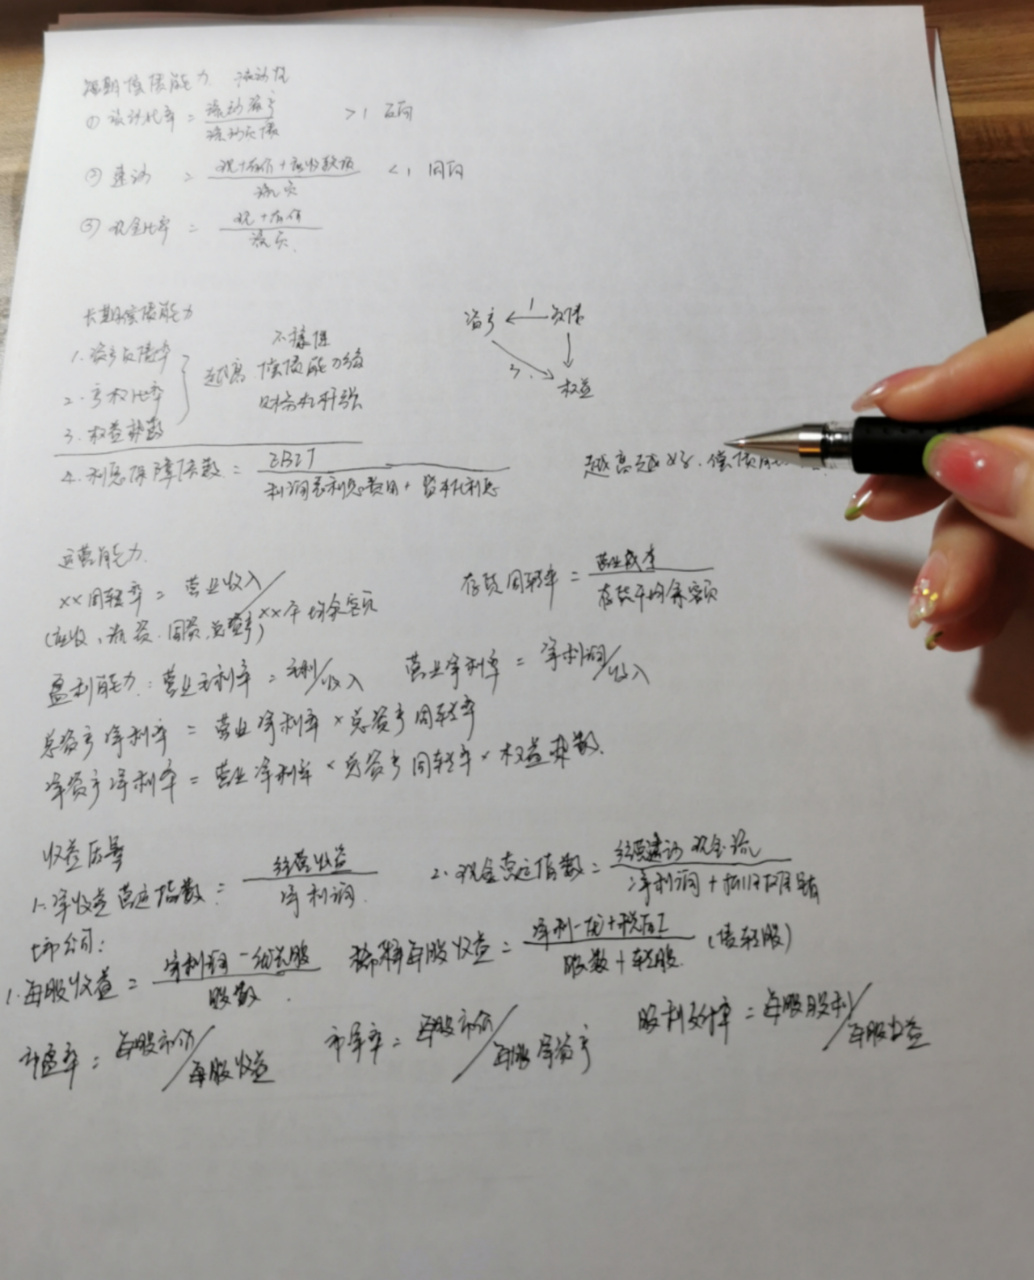 短期偿债能力 流动性
① 流动比率 = 流动资产 / 流动负债 > 1 反向
② 速动 = 现+有价+应收款项 / 流负 < 1 同向
③ 现金比率 = 现+有价 / 流负
长期偿债能力
1. 资产负债率
2. 产权比率
3. 权益乘数
越高 不稳健 偿债能力弱 财务杠杆强
资产 ← 1 负债
3. 权益
4. 利息保障倍数 = EBIT / 利润表利息费用 + 资本化利息 越高越好. 偿债
运营能力
xx周转率 = 营业收入 / xx平均余额 存货周转率 = 营业成本 / 存货平均余额
(应收、流资、固资、总资产)
盈利能力: 营业毛利率 = 毛利/收入 营业净利率 = 净利润/收入
总资产净利率 = 营业净利率 × 总资产周转率
净资产净利率 = 营业净利率 × 总资产周转率 × 权益乘数.
收益质量
1. 净收益营运指数 = 经营收益 / 净利润 2. 现金营运指数 = 经营活动现金流 / 净利润 +
上市公司:
1. 每股收益 = 净利润 - 优先股 / 股数 稀释每股收益 = 净利-优+税后I / 股数+转股 (债转股)
市盈率 = 每股市价/每股收益 市净率 = 每股市价/每股净资产 股利支付率 = 每股股利/每股收益